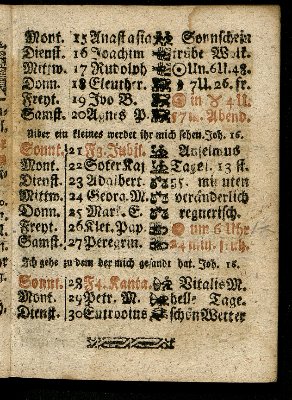 Mont. 15 Anastasia Sonnschein
Dienst. 16 Joachim trübe Wolk.
Mittw. 17 Rudolph Un. 6 U. 48.
Donn. 18 Eleuther. 7 U. 26. fr.
Freyt. 19 Ivo B. in 4 U.
Samst. 20 Agnes P. Abend.
Uiber ein kleines werdet ihr mich sehen. Joh. 16.
Sonnt. 21 F3. Jubil. Anselmus
Mont. 22 Soter Kaj Tagsl. 13 st.
Dienst. 23 Adalbert. 35. minuten
Mittw. 24 Georg. M. veränderlich
Donn. 25 Mark. E. regnerisch.
Freyt. 26 Klet. Pap. um 6 Uhr
Samst. 27 Peregrin. 24 min.
Ich gehe zu dem der mich gesandt hat. Joh. 16.
Sonnt. 28 F4. Kanta. Vitalis M.
Mont. 29 Petr. M. helle Tage.
Dienst. 30 Eutropius schön Wetter